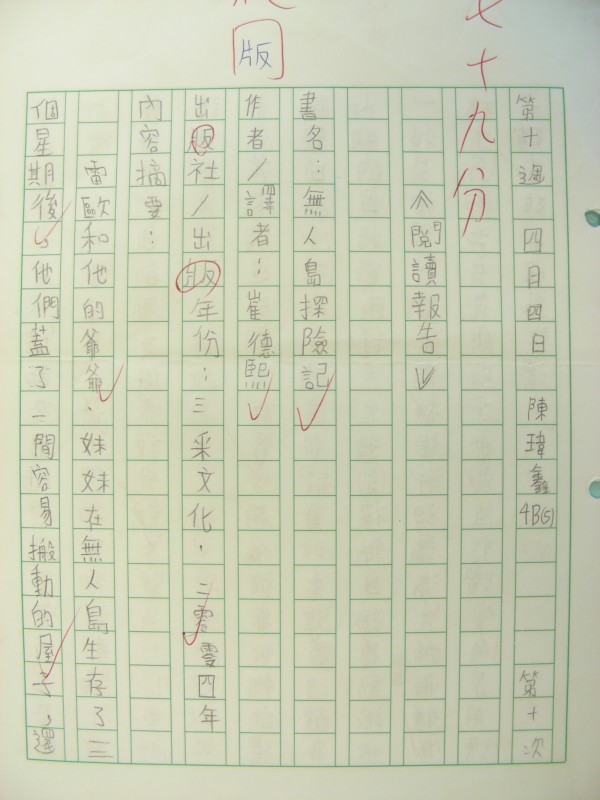 七十九分
版
第十週 四月四日 陳瑋鑫 4B(5) 第十次
《閱讀報告》
書名：無人島探險記
作者/譯者：崔德熙
出版社/出版年份：三采文化，二零零四年
內容摘要：
雷歐和他的爺爺、妹妹在無人島生存了三
個星期後，他們蓋了一間容易搬動的屋子，還